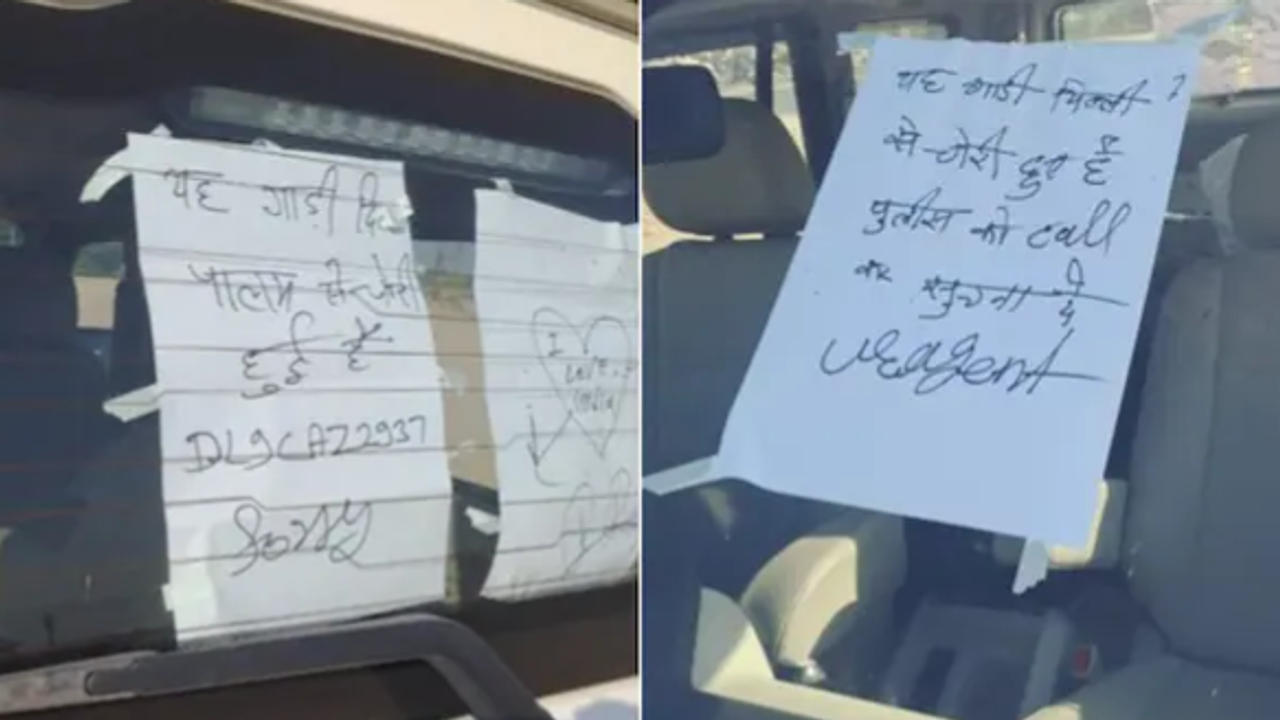 यह गाडी
पालम से चोरी
हुई है
DL9CAZ2937
Sorry
I
Love
यह गाडी दिल्ली
से चोरी हुए है
पुलीस को call
कर सुचना दे
Uragent